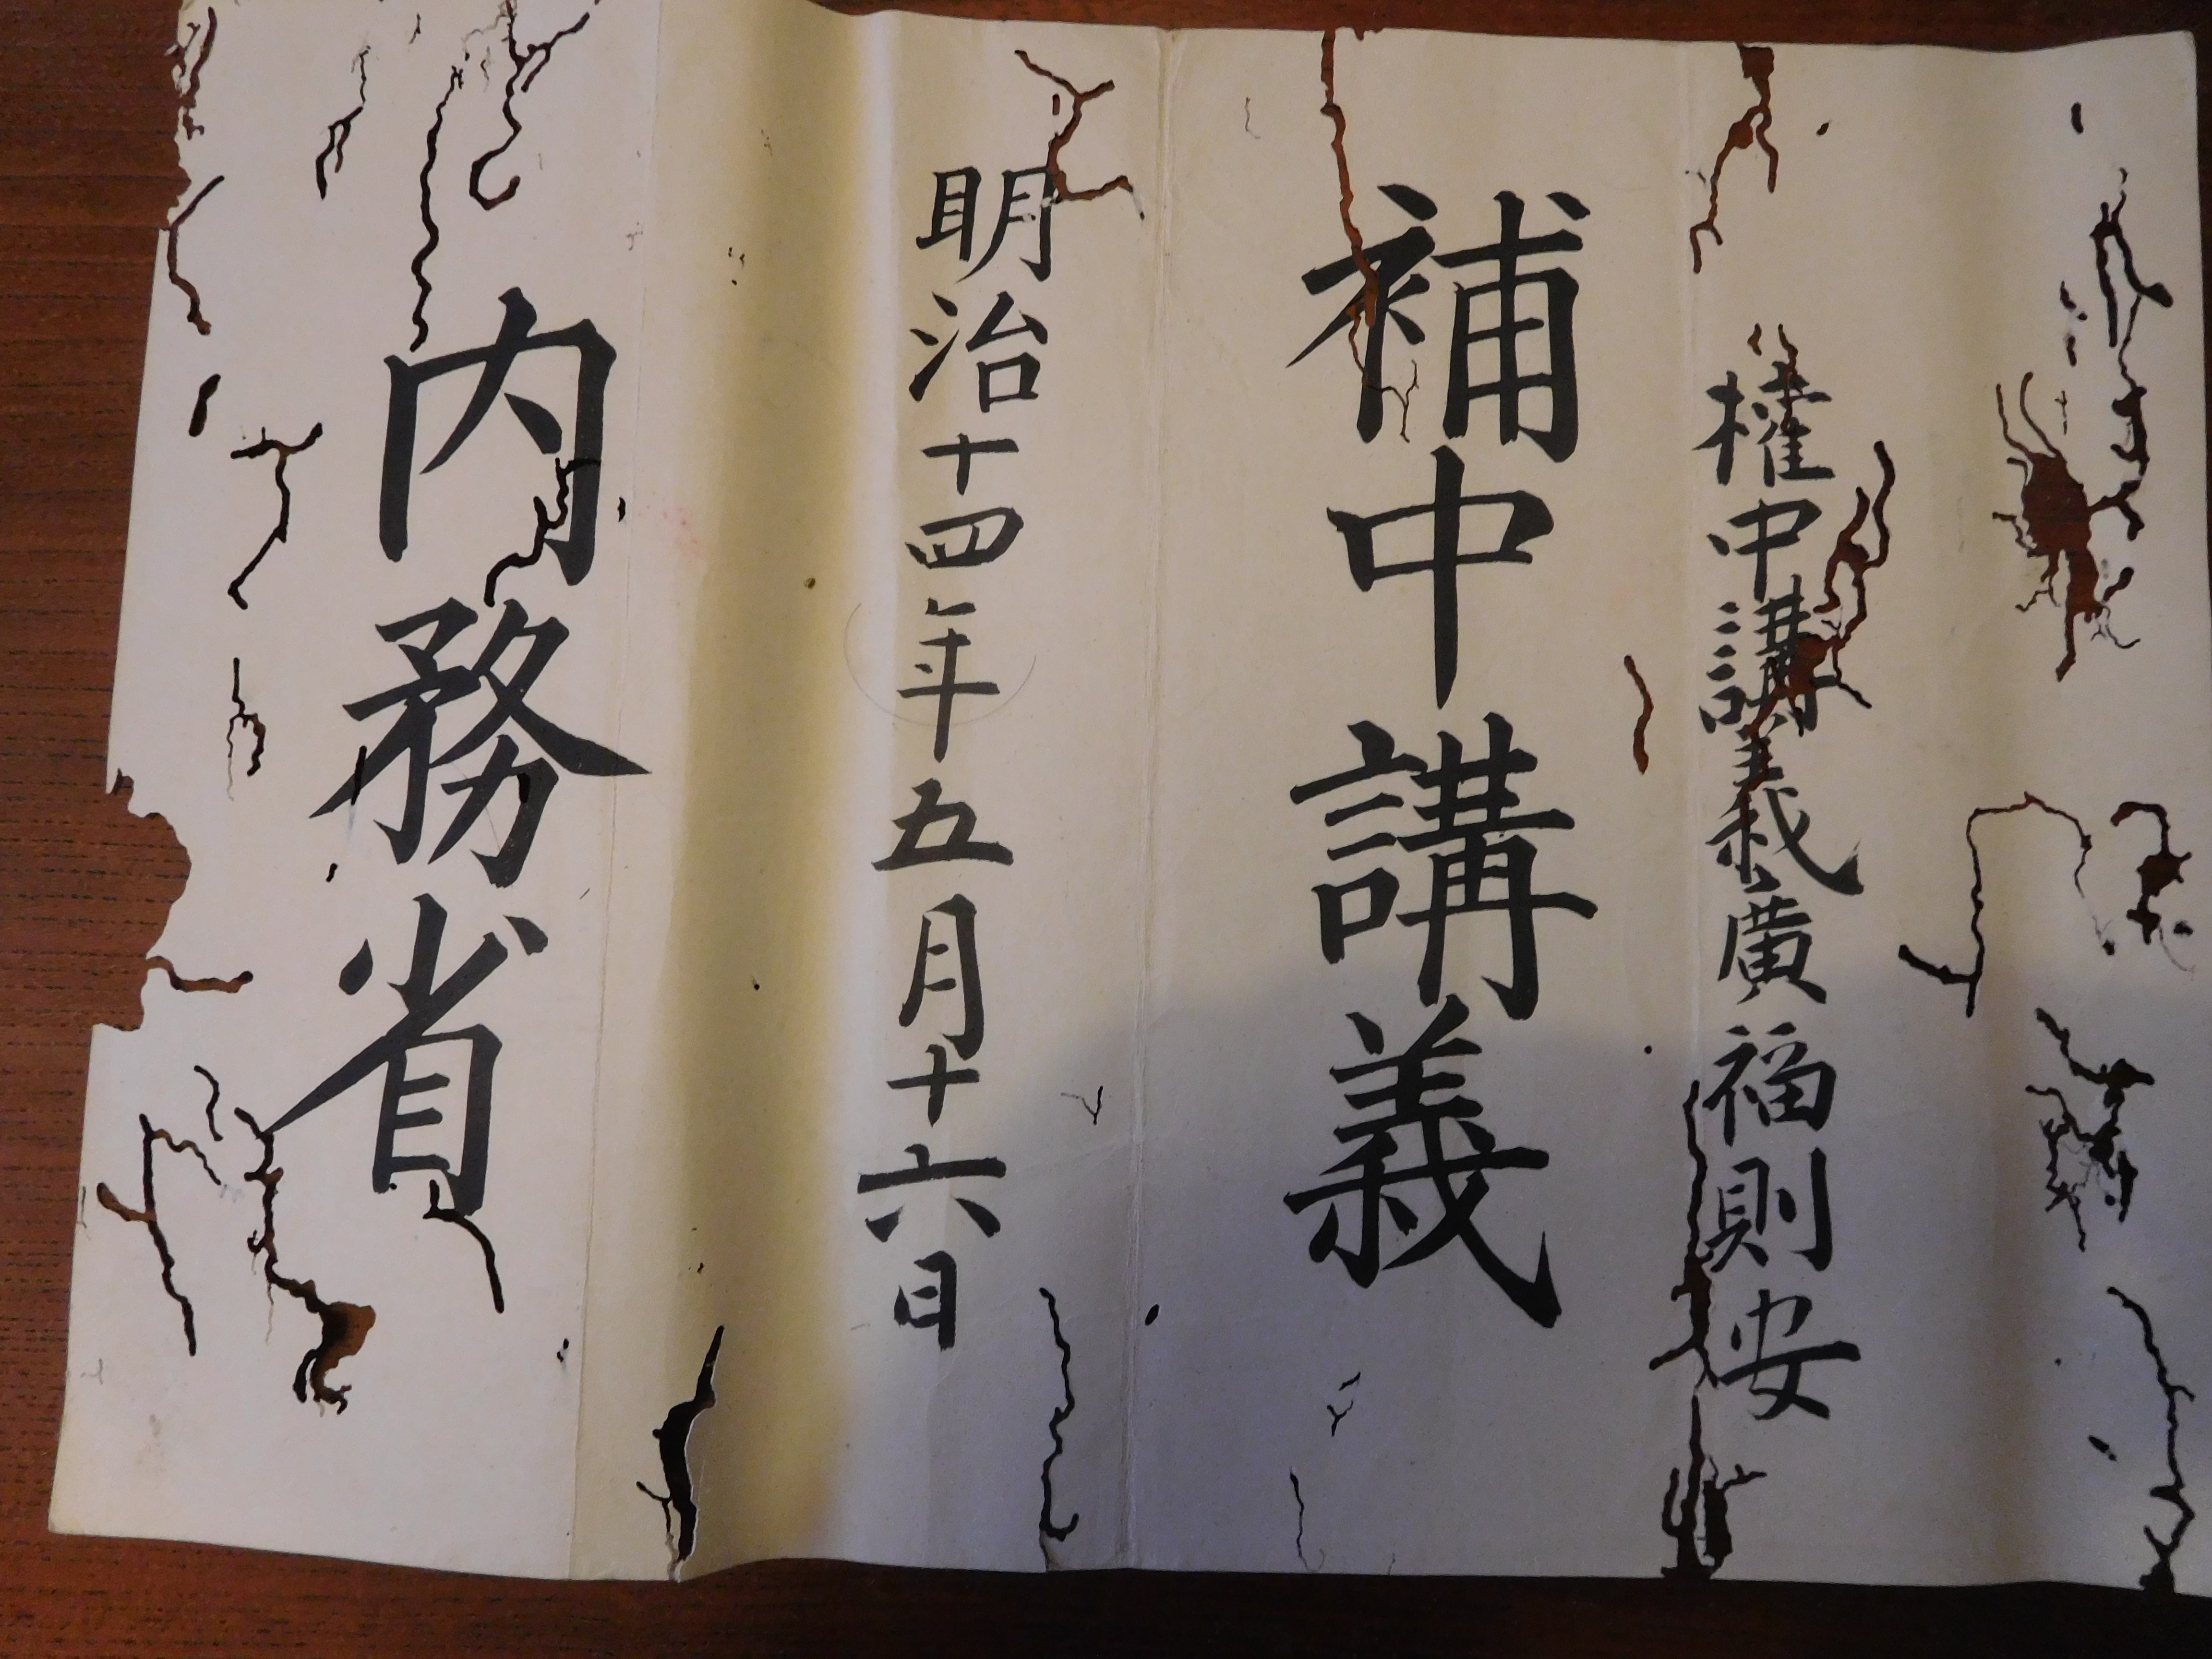 権中講義廣福則安
補中講義
明治十四年五月十六日
内務省